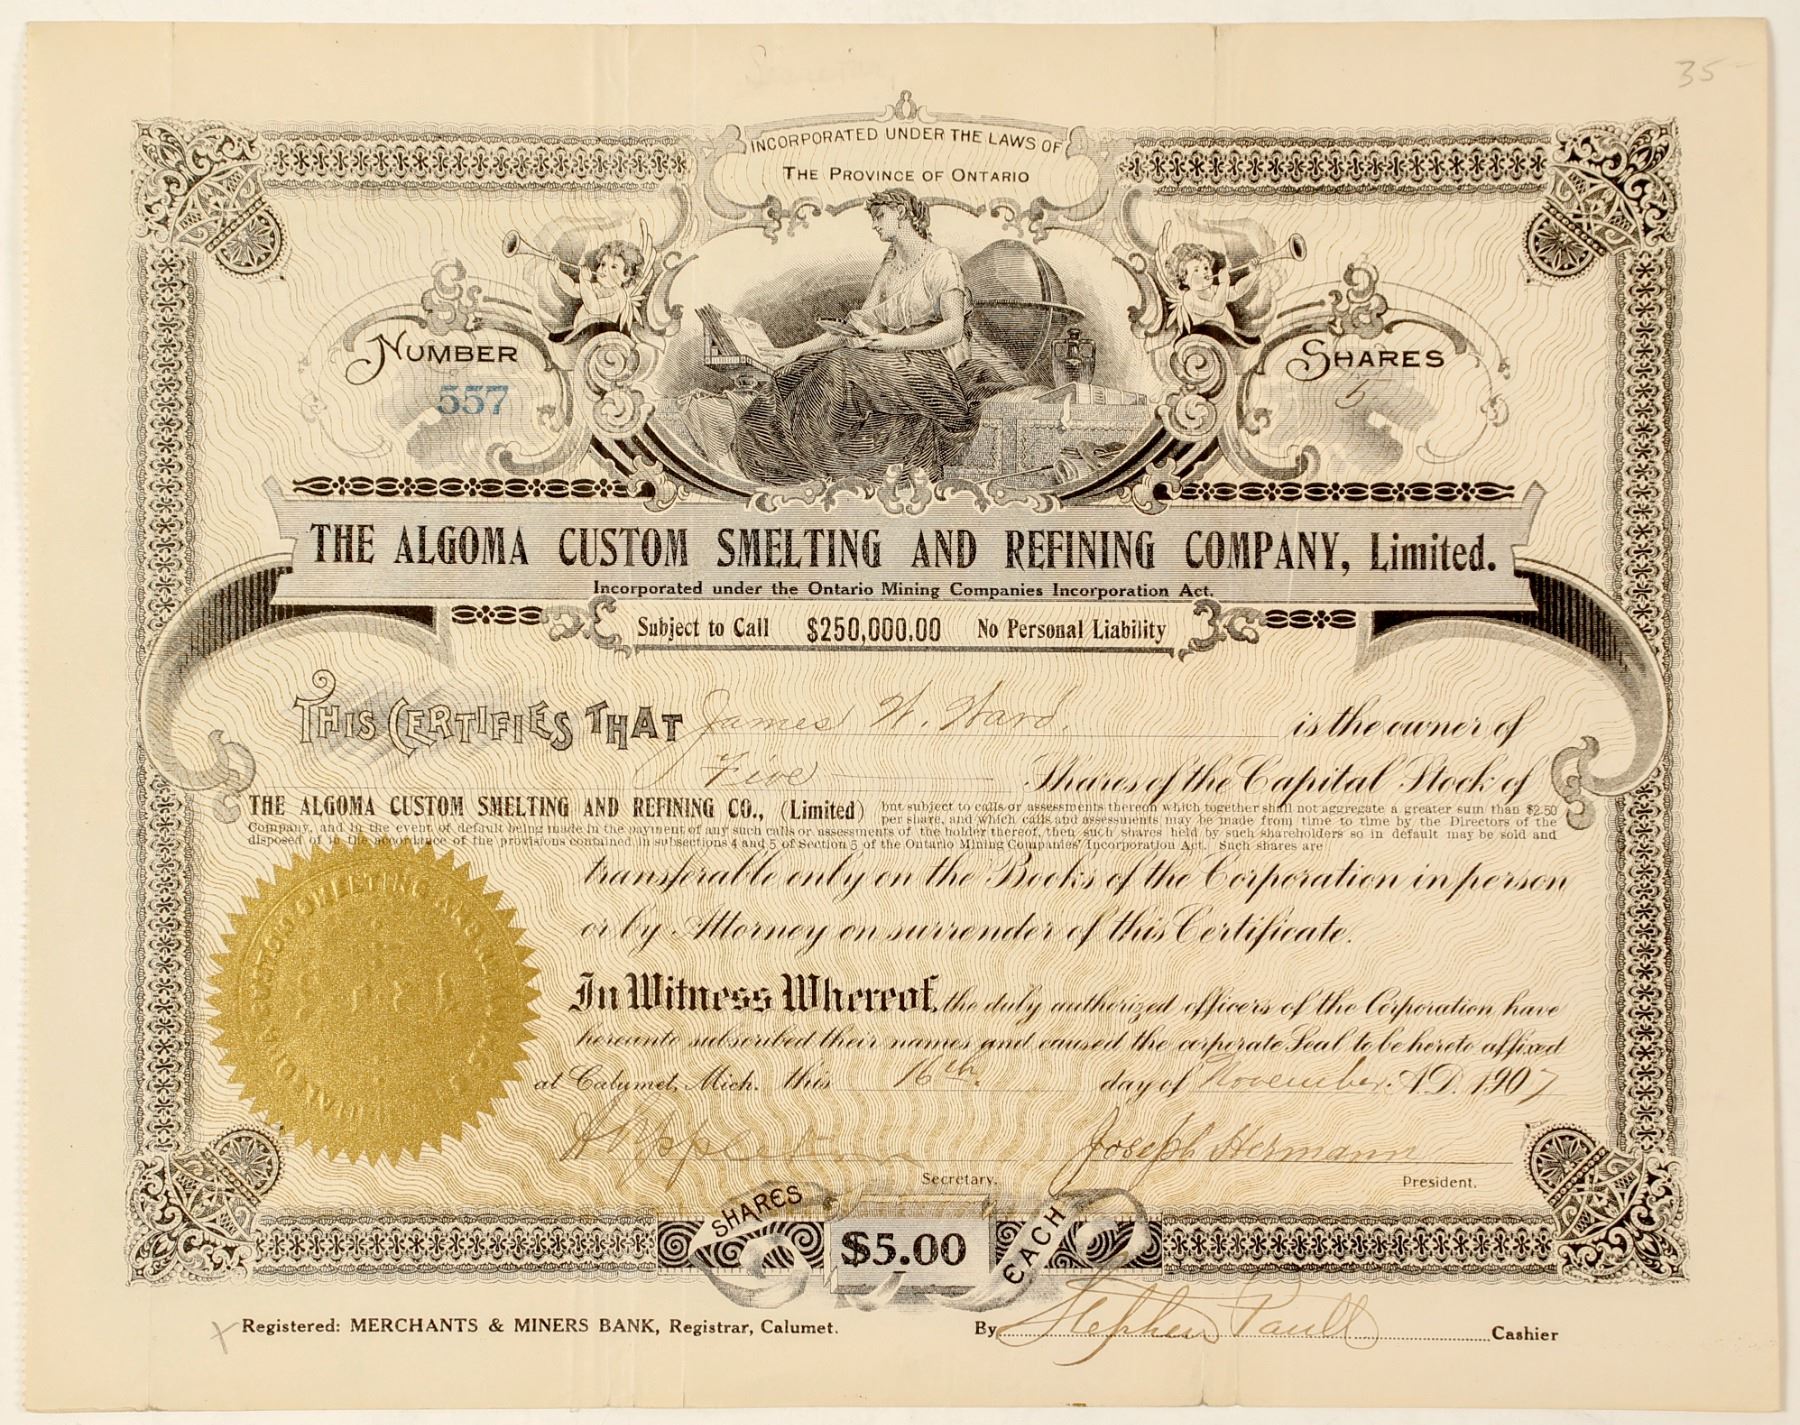 35-
INCORPORATED UNDER THE LAWS OF
THE PROVINCE OF ONTARIO
NUMBER
557
SHARES
5
THE ALGOMA CUSTOM SMELTING AND REFINING COMPANY, Limited.
Incorporated under the Ontario Mining Companies Incorporation Act.
Subject to Call $250,000.00 No Personal Liability
THIS CERTIFIES THAT James W. Ward. is the owner of
Five Shares of the Capital Stock of
THE ALGOMA CUSTOM SMELTING AND REFINING CO., (Limited) but subject to calls or assessments thereon which together shall not aggregate a greater sum than $2.50
per share, and which calls and assessments may be made from time to time by the Directors of the
Company, and in the event of default being made in the payment of any such calls or assessments of the holder thereof, then such shares held by such shareholders so in default may be sold and
disposed of in the accordance of the provisions contained in subsections 4 and 5 of Section 5 of the Ontario Mining Companies' Incorporation Act. Such shares are
transferable only on the Books of the Corporation in person
or by Attorney on surrender of this Certificate.
In Witness Whereof, the duly authorized officers of the Corporation have
hereunto subscribed their names and caused the corporate Seal to be hereto affixed
at Calumet, Mich. this 16th day of November. A.D. 1907
CUSTOM SMELTING AND
Appleton Joseph Hermann
Secretary. President.
SHARES $5.00 EACH
X Registered: MERCHANTS & MINERS BANK, Registrar, Calumet. By Stephen Paull Cashier